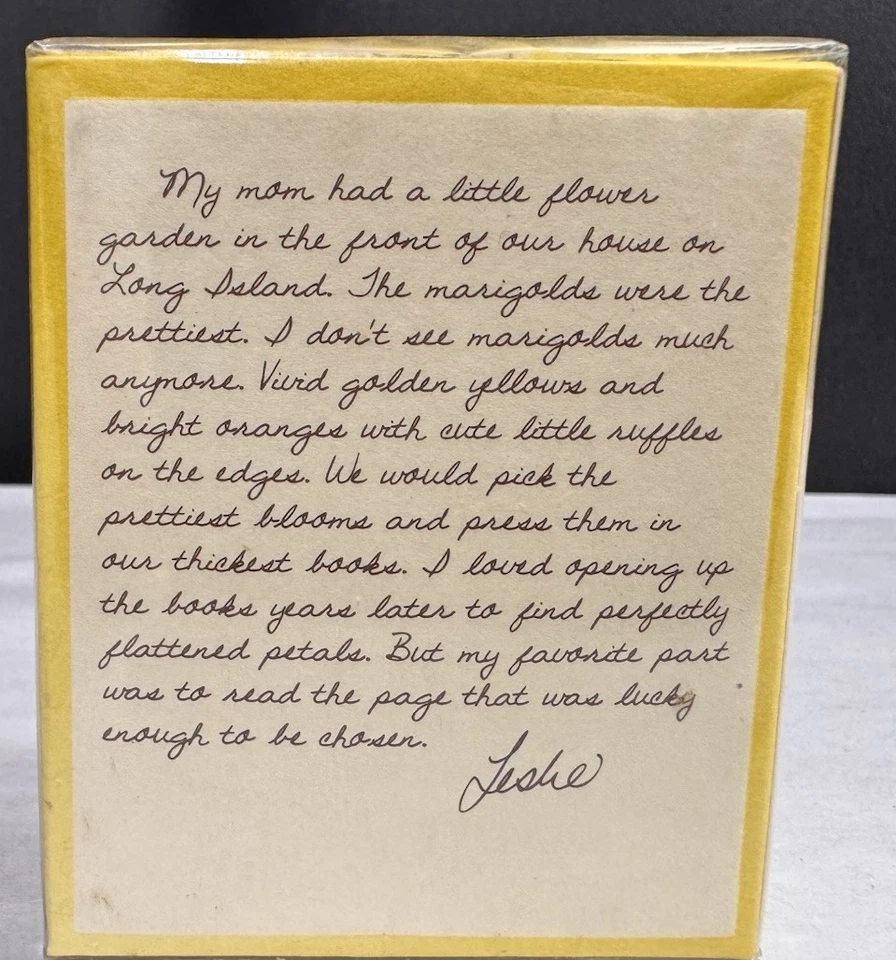 My mom had a little flower
garden in the front of our house on
Long Island. The marigolds were the
prettiest. I don't see marigolds much
anymore. Vivid golden yellows and
bright oranges with cute little ruffles
on the edges. We would pick the
prettiest blooms and press them in
our thickest books. I loved opening up
the books years later to find perfectly
flattened petals. But my favorite part
was to read the page that was lucky
enough to be chosen.
Leslie